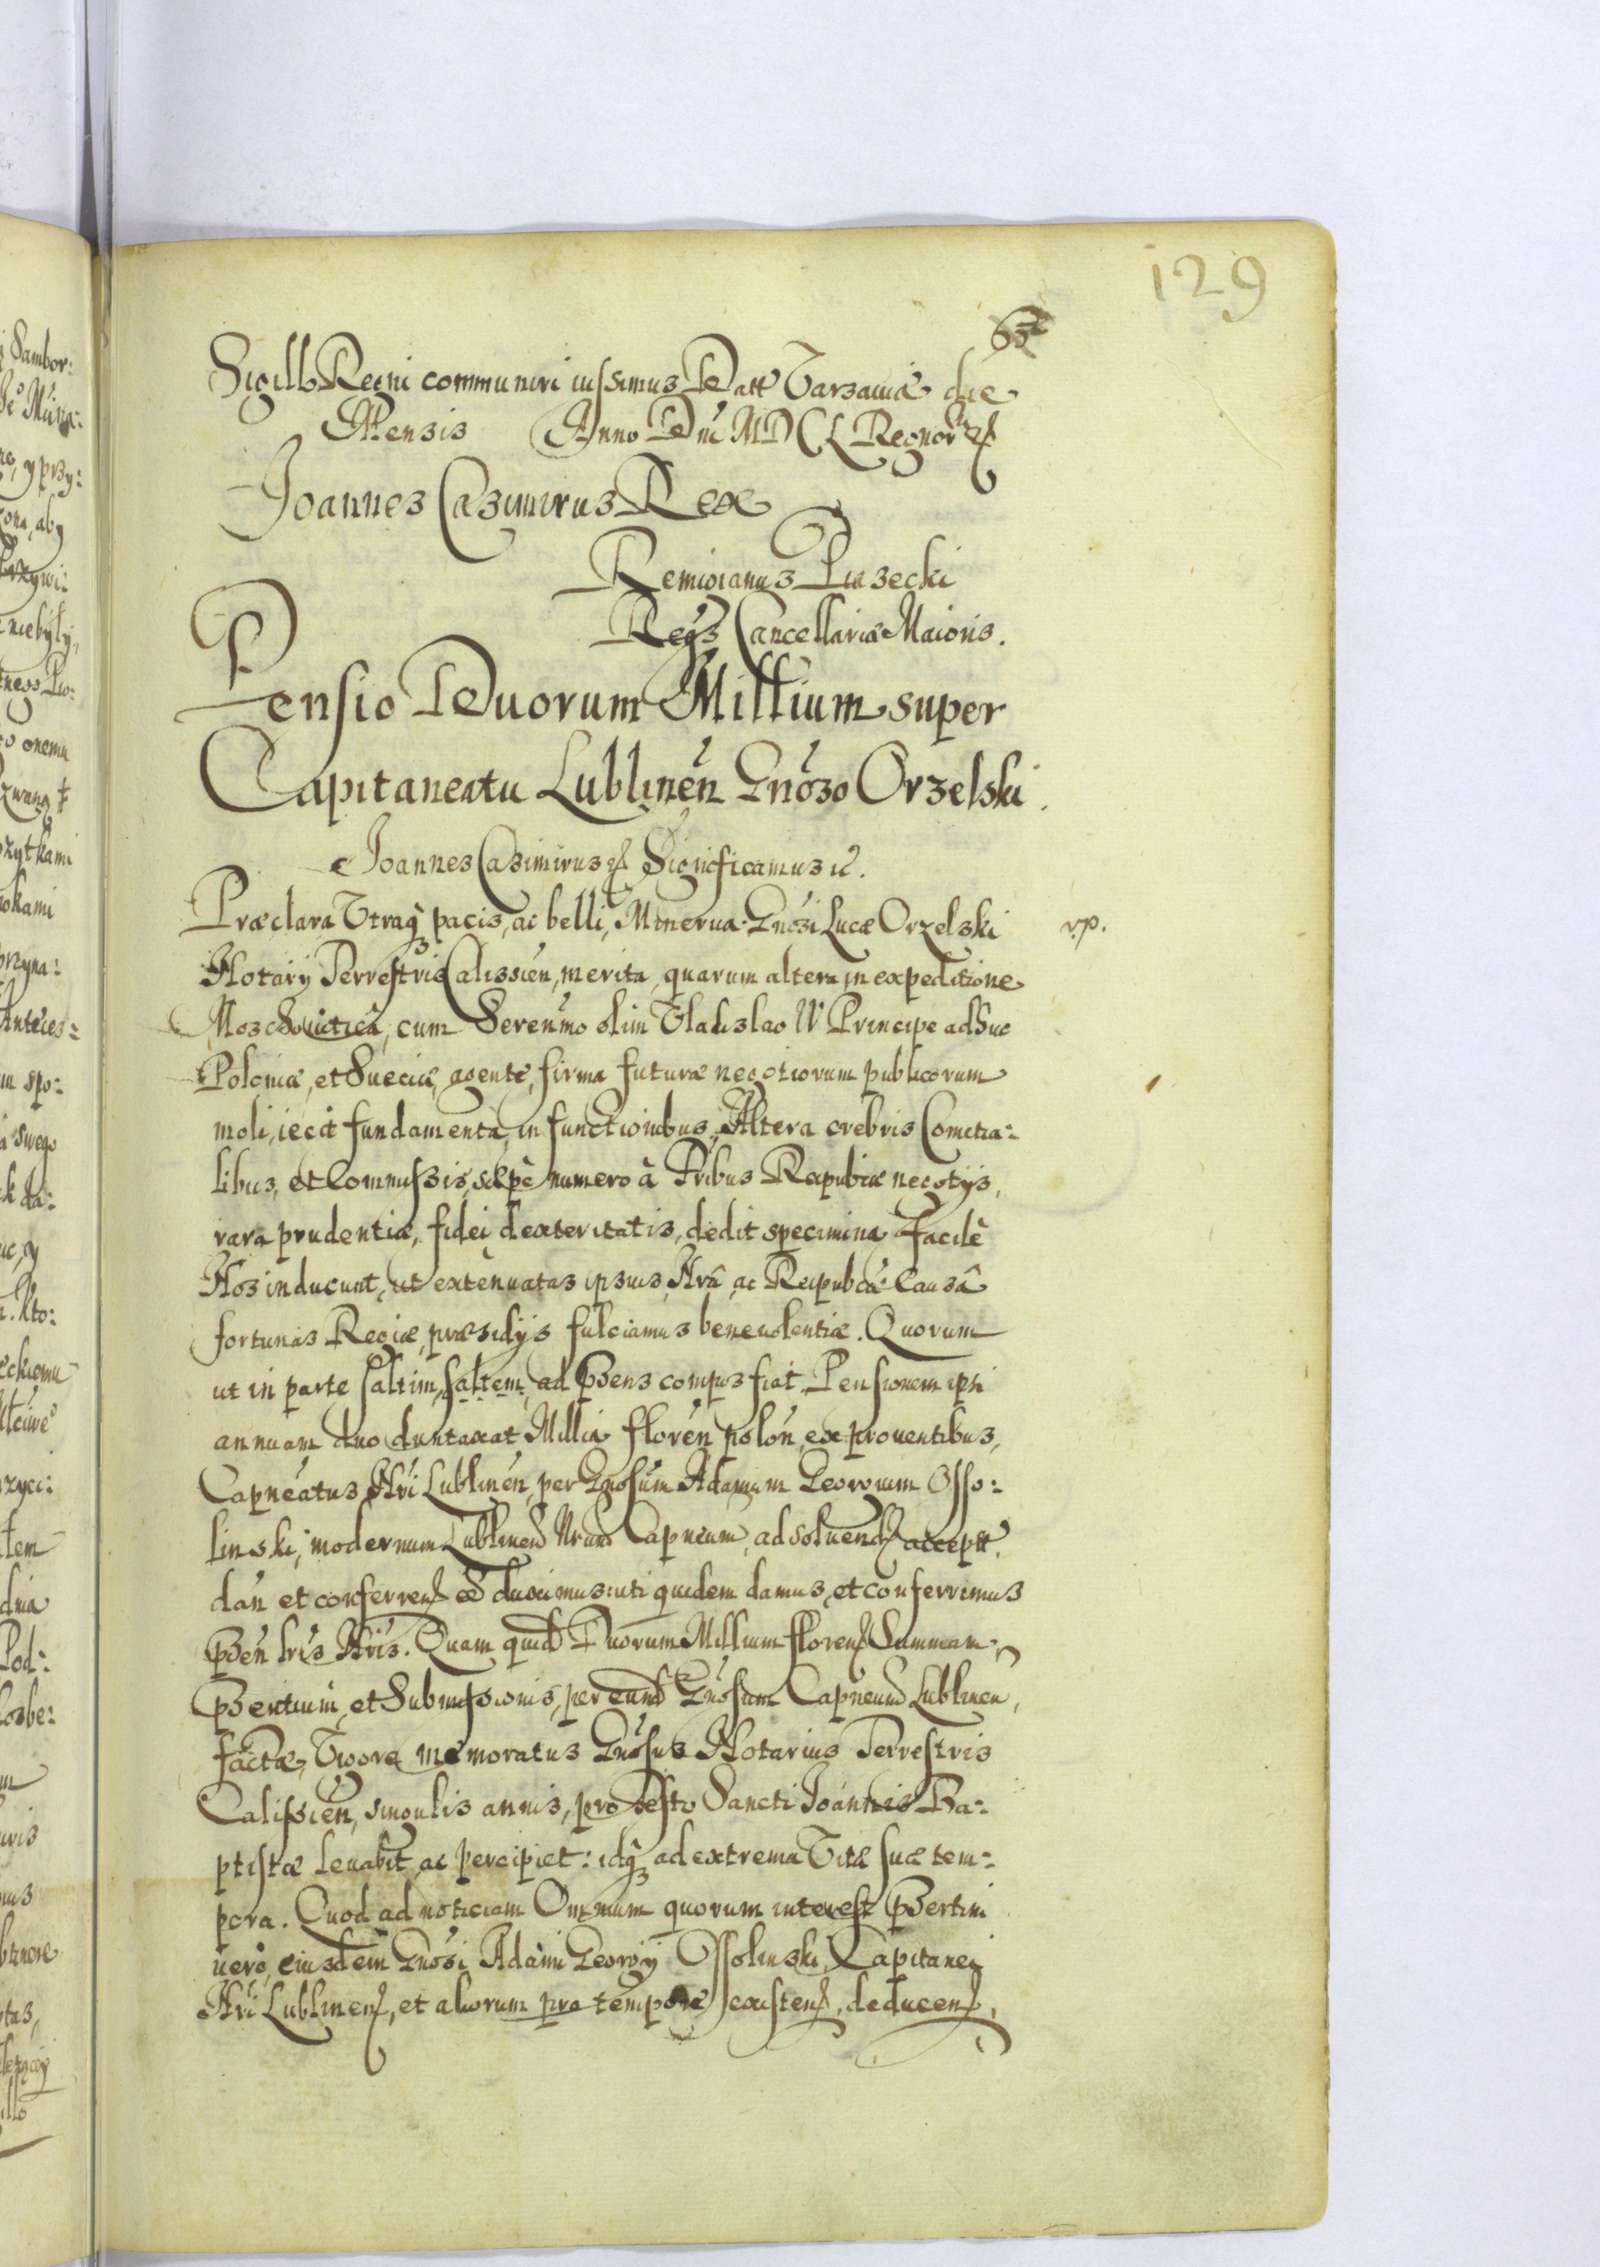 129
Sigillo Regni communiri iussimus Datt Varsaviæ die
Mensis Anno Dni MDCL Regnor
Joannes Casimirus Rex
Remigianus Piasecki
Regs Cancellariæ Maioris.
Pensio Duorum Millium super
Capitaneatu Lublinen Gnoso Orzelski.
Joannes Casimirus Significamus
Præclara Utraq pacis, ac belli, Minerua Gnosi Lucæ Orzelski
v.p.
Notarÿ Terrestris Calissien, merita, quarum altera in expeditione
Moschouitica, cum Serenmo olim Vladislao IV Principe adhuc
Poloniæ, et Sueciæ, agente, firma futuræ negotiorum publicorum
moli, iecit fundamenta, in functionibus, Altera crebris Comitia:
libus, et Commissis, sæpè numero à Reipubcæ negotÿs,
rara prudentiæ, fidei, dexteritatis, dedit specimina, facilè
Nos inducunt, ut extenuatas ipsius, Nrâ, ac Reipubcæ Causâ
fortunas Regiæ, præsidÿs fulciamus beneuolentiæ. Quorum
ut in parte saltim, saltem, ad compos fiat, Pensionem ipsi
annuam duo duntaxat Millia floren polon, ex prouentibus,
Capneatus Nri Lublinen, per Gnosum Adamum Georgium Osso:
linski, modernum Lublinen Capneum, ad soluend
dan et conferren duximus uti quidem damus, et conferrimus
Nris. Quam quid Duorum Millium floren Summam,
et Submissionis, per eund Gnosum Capneum Lublinen,
factæ, Vigore memoratus Gnosus Notarius Terrestris
Calissien, singulis annis, pro festo Sancti Joannis Ba:
ptistæ leuabit, ac percipiet: idq ad extrema Vitæ suæ tem:
pora. Quod ad noticiam Omnium quorum interest
uerò, eiusdem Gnosi Adami Georgÿ Ossolinski, Capitanei
Nri Lublinen, et aliorum pro tempore existen, deducen,